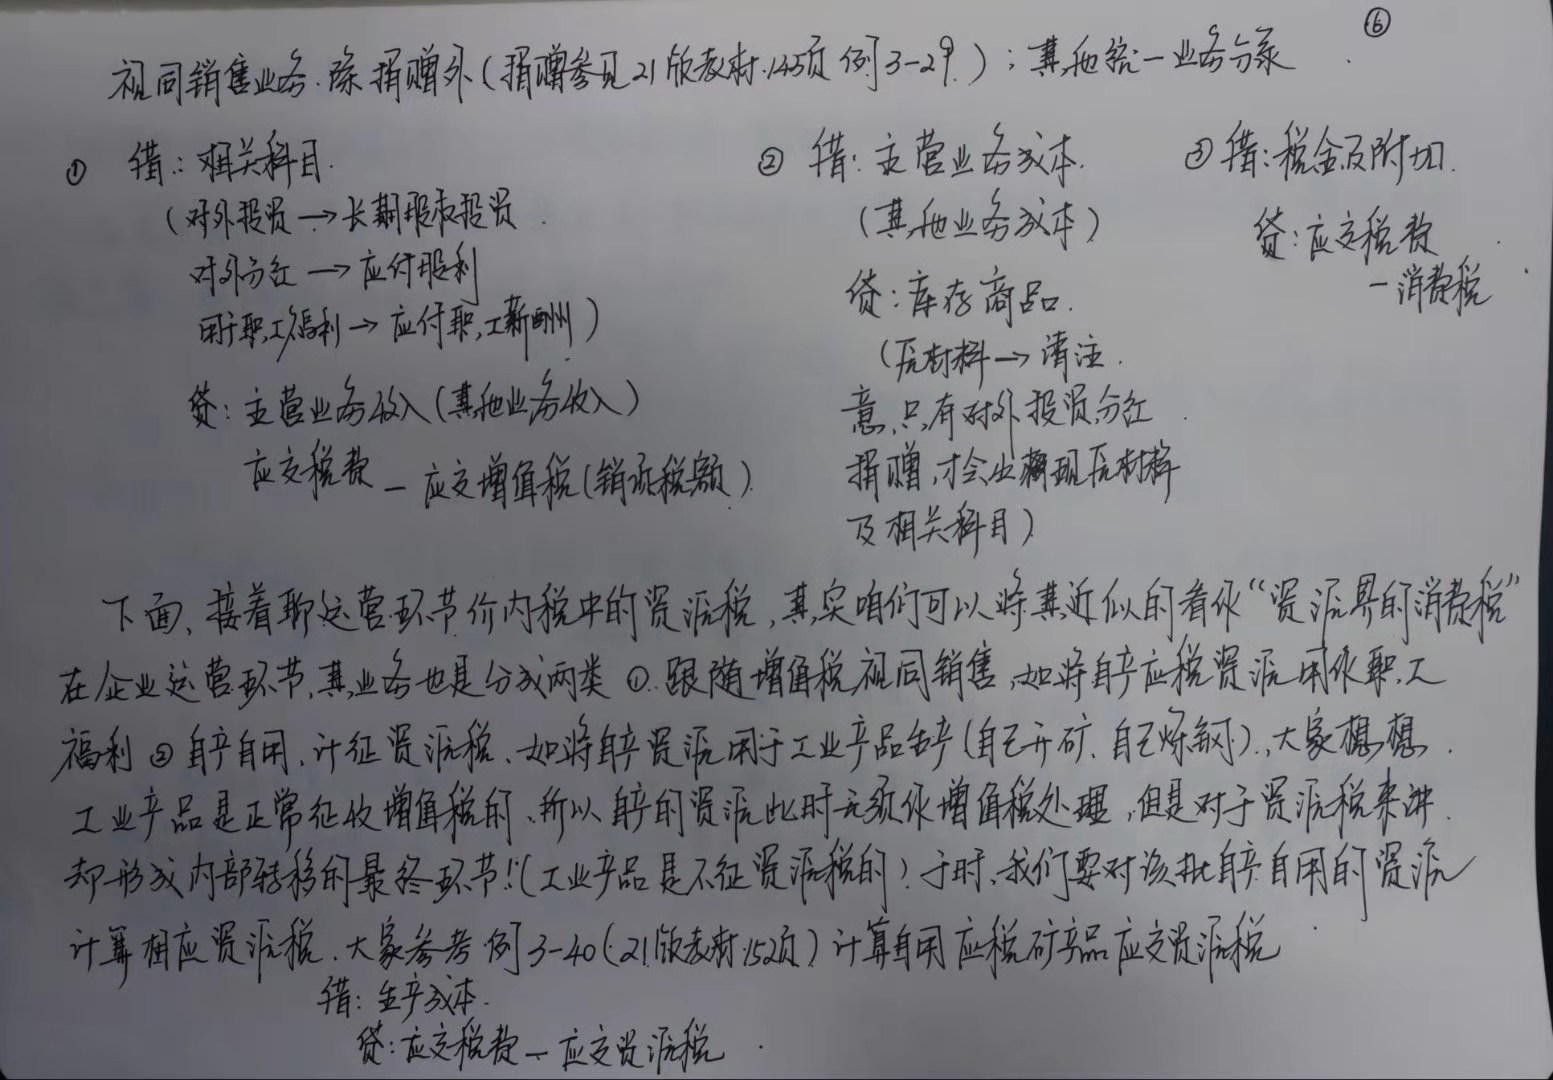 ⑥
视同销售业务.除捐赠外(捐赠参见21版教材.145页 例3-29.);其他统一业务分录
① 借:相关科目.
(对外投资→长期股权投资
对外分红→应付股利
用于职工福利→应付职工薪酬)
贷:主营业务收入(其他业务收入)
应交税费-应交增值税(销项税额)
② 借:主营业务成本.
(其他业务成本)
贷:库存商品.
(原材料→请注
意,只有对外投资分红
捐赠,才会出现原材料
及相关科目)
③ 借:税金及附加.
贷:应交税费
-消费税
下面,接着聊运营环节价内税中的资源税,其实咱们可以将其近似的看作“资源界的消费税”
在企业运营环节,其业务也是分成两类 ①.跟随增值税视同销售,如将自产应税资源用作职工
福利 ②自产自用,计征资源税、如将自产资源用于工业产品生产(自己开矿、自己炼钢),大家想想.
工业产品是正常征收增值税的、所以自产的资源此时无须作增值税处理,但是对于资源税来讲.
却形成内部转移的最终环节!(工业产品是不征资源税的)于时、我们要对该批自产自用的资源
计算相应资源税.大家参考例3-40(21版教材152页)计算自用应税矿产品应交资源税
借:生产成本.
贷:应交税费-应交资源税